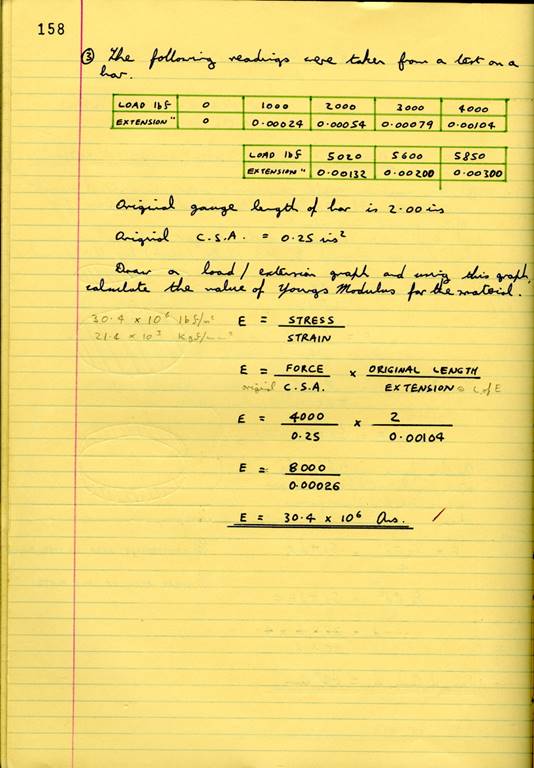 158
③ The following readings were taken from a test on a
bar.
LOAD lbf 0 1000 2000 3000 4000
EXTENSION" 0 0.00024 0.00054 0.00079 0.00104
LOAD lbf 5020 5600 5850
EXTENSION" 0.00132 0.00200 0.00300
Original gauge length of bar is 2.00 ins
Original C.S.A. = 0.25 ins²
Draw a load/extension graph and using this graph,
calculate the value of Youngs Modulus for the material.
30.4 × 10⁶ lbf/in²
21.4 × 10³
E = STRESS
STRAIN
E = FORCE × ORIGINAL LENGTH
original C.S.A. EXTENSION
E = 4000 × 2
0.25 0.00104
E = 8000
0.00026
E = 30.4 × 10⁶ Ans.